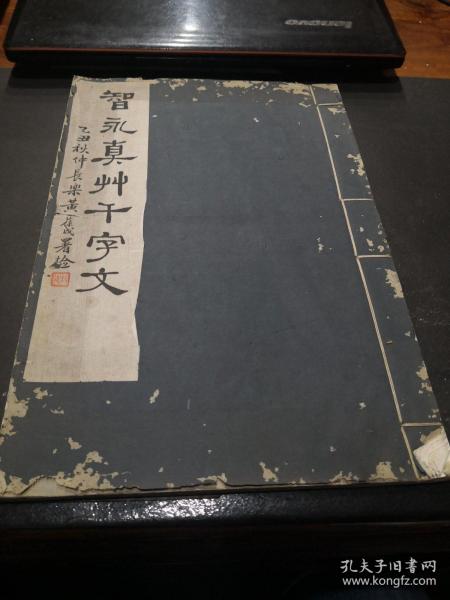 lenovo
智永真艸千字文
乙丑秋仲長樂黃葆戉署檢
孔夫子旧书网
www.kongfz.com